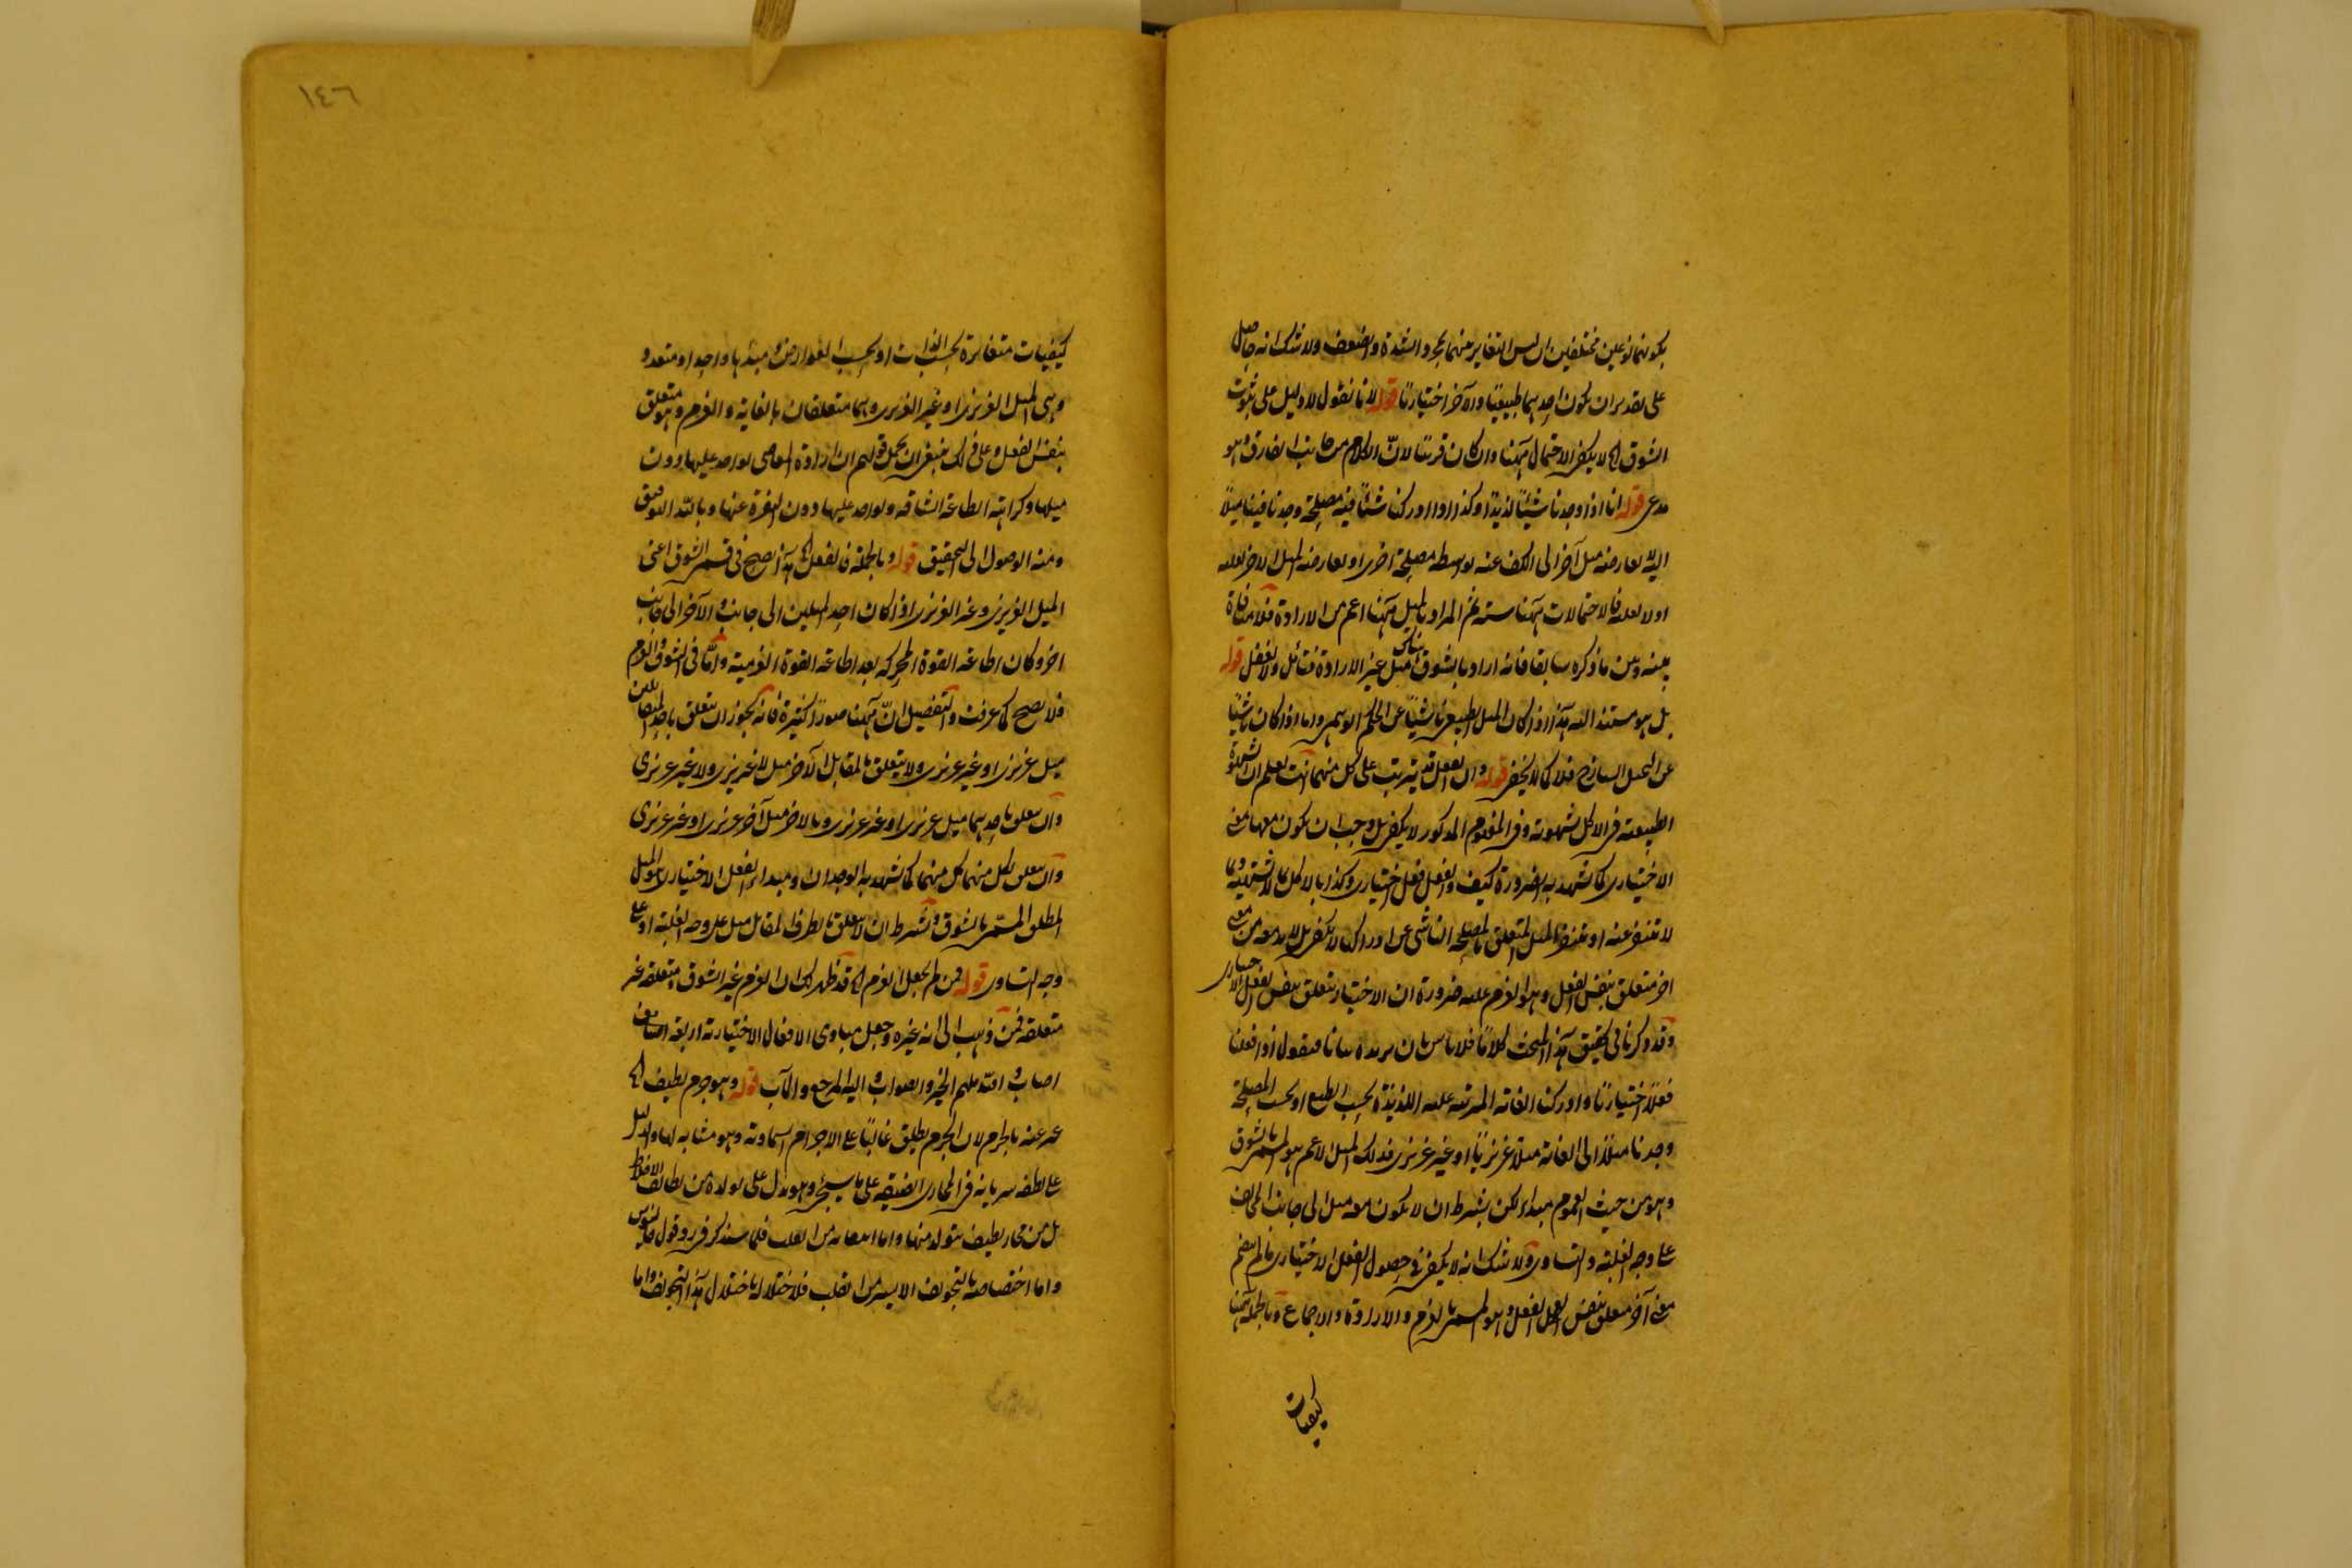 بكونهما نوعين مختلفين اذ ليس التغاير بينهما بمجرد الشدة والضعف ولا شك انه حاصل
على تقدير ان يكون احدهما طبيعيا والآخر اختياريا قوله لانا نقول لا دليل على ثبوت
الشوق الخ لا يكفي الاحتمال ههنا وان كان قريبا لان الكلام من جانب الفارق وهو
مدعي قوله انا اذا وجدنا شيئا لذيذا وكذا اذا ادركنا شيئا فيه مصلحة وجدنا فينا ميلا
اليه يعارضه ميل آخر الى الكف عنه بواسطة مصلحة اخرى او يعارضه الميل الآخر
اولا فالاحتمالات ههنا ستة ثم المراد بالميل ههنا اعم من الارادة فلا منافاة
بينه وبين ما ذكره سابقا فانه اراد بالشوق هناك ميل غير الارادة فتأمل ولا تغفل قوله
بل هو مستند اليه هذا اذا كان الميل الطبيعي ناشيا عن الحكم الوهمي واما اذا كان ناشيا
عن الميل الساذج فلا كما لا يخفى قوله وان الفعل قد يترتب على كل منهما انت تعلم ان الشهوة
الطبيعية في الاكل بشهوته وفي المذكور لا يكفي بل وجب ان يكون معها معنى
الاختياري كما تشهد به الضرورة كيف والفعل فعل اختياري وكذا بالاكل بما لا تشتهيه وبما
لا تتنفر عنه او تتنفر الميل المتعلق بالمصلحة الناشي عن ادراكها لا يكفي بل لا بد معه من معنى
آخر متعلق بنفس الفعل وهو العزم عليه ضرورة ان الاختيار يتعلق بنفس الفعل الاختياري
وقد ذكرنا في تحقيق هذا المبحث كلاما فلا باس بان نزيده بيانا فنقول اذا فعلنا
فعلا اختياريا وادركنا الغاية المترتبة عليه اللذيذة بحسب الطبع او بحسب المصلحة
وجدنا ميلا الى الغاية ميلا غريزيا او غير غريزي فذلك الميل الاعم هو المسمى بالشوق
وهو من حيث العموم مبدأ لكن بشرط ان لا يكون معه ميل الى جانب المخالف
على وجه الغلبة والتساوي ولا شك انه لا يكفي في حصول الفعل الاختياري ما لم ينضم
معنى آخر متعلق بنفس الفعل وهو المسمى بالعزم والارادة والاجماع وبالجملة ههنا
كيفيات
١٤٦
كيفيات متغايرة بحسب الذات او بحسب العوارض ومبدأها واحد او متعدد
وهي الميل الغريزي او غير الغريزي وهما متعلقان بالغاية والعزم وهو متعلق
بنفس الفعل وعلى ذلك ينبغي ان يحمل قولهم ان ارادة المعاصي يؤاخذ عليها دون
ميلها وكراهة الطاعة الشاقة يؤاخذ عليها دون النفرة عنها وبالله التوفيق
ومنه الوصول الى التحقيق قوله وبالجملة فالفعل الخ هذا يصح في قسم الشوق اعني
الميل الغريزي وغير الغريزي اذا كان احد الميلين الى جانب والآخر الى جانب
آخر وكان اطاعة القوة المحركة بعد اطاعة القوة العزمية واما في الشوق والعزم
فلا يصح كما عرفت والتفصيل ان ههنا صورا كثيرة فانه يجوز ان يتعلق باحد المتقابلين
ميل غريزي او غير غريزي ولا يتعلق بالمقابل الآخر ميل لا غريزي ولا غير غريزي
وان يتعلق باحدهما ميل غريزي او غير غريزي وبالآخر ميل آخر غريزي او غير غريزي
وان يتعلق بكل منهما كل منهما كما يشهد به الوجدان ومبدأ الفعل الاختياري هو الميل
المطلق المسمى بالشوق بشرط ان لا يتعلق بالطرف المقابل ميل على وجه الغلبة او على
وجه التساوي قوله فمن لم يجعل العزم الخ قد ظهر لك ان العزم غير الشوق متعلقه غير
متعلقه فمن ذهب الى انه غيره وجعل مبادي الافعال الاختيارية اربعة
اصاب والله ملهم الخير والصواب واليه المرجع والمآب قوله وهو جرم لطيف الخ
عبر عنه بالجرم لان الجرم يطلق غالبا على الاجرام السماوية وهو مشابه لها والدليل
على لطفه سريانه في المجاري الضيقة على ما سيجيء وهو يدل على تولده من لطائف الاخلاط
بل من بخار لطيف يتولد منها واما انبعاثه من القلب فلما سنذكر في رد قول جالينوس
واما اختصاصه بالتجويف الايسر من القلب فلاختلاله باختلال هذا التجويف واما